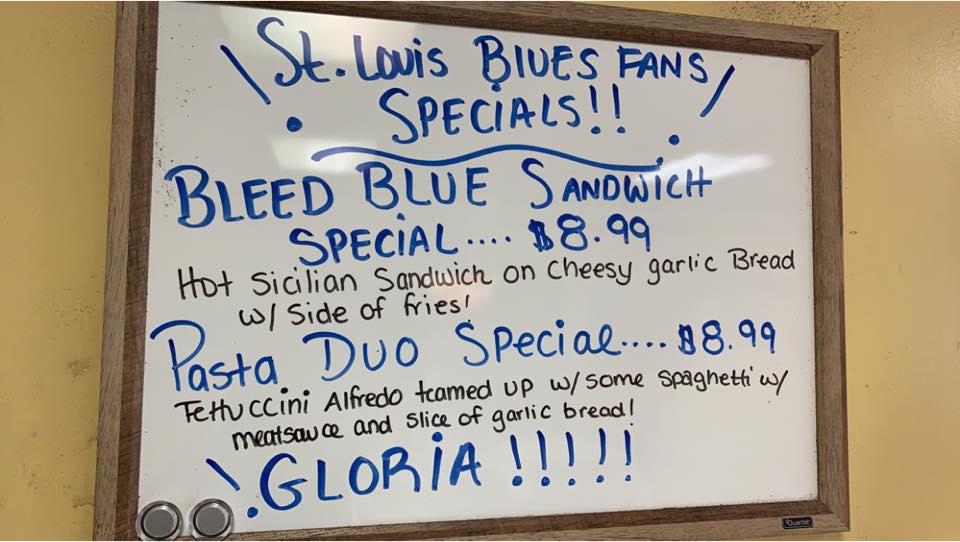 \ St. Louis Blues Fans /
. Specials!! .
Bleed Blue Sandwich
Special.... $8.99
Hot Sicilian Sandwich on Cheesy garlic Bread
w/ Side of fries!
Pasta Duo Special.... $8.99
Fettuccini Alfredo teamed up w/ some spaghetti w/
meatsauce and slice of garlic bread!
\. GLORIA !!!!!
Quartet